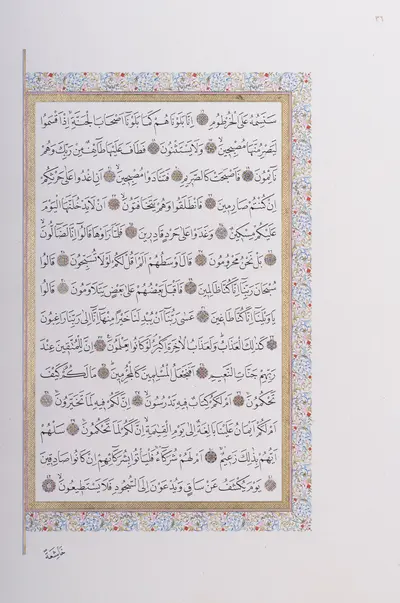 ٣٦
سَنَسِمُهُ عَلَى الْخُرْطُومِ اِنَّا بَلَوْنَاهُمْ كَمَا بَلَوْنَا اَصْحَابَ الْجَنَّةِ اِذْ اَقْسَمُوا
لَيَصْرِمُنَّهَا مُصْبِحِينَ وَلَا يَسْتَثْنُونَ فَطَافَ عَلَيْهَا طَائِفٌ مِنْ رَبِّكَ وَهُمْ
نَائِمُونَ فَاَصْبَحَتْ كَالصَّرِيمِ فَتَنَادَوْا مُصْبِحِينَ اَنِ اغْدُوا عَلَى حَرْثِكُمْ
اِنْ كُنْتُمْ صَارِمِينَ فَانْطَلَقُوا وَهُمْ يَتَخَافَتُونَ اَنْ لَا يَدْخُلَنَّهَا الْيَوْمَ
عَلَيْكُمْ مِسْكِينٌ وَغَدَوْا عَلَى حَرْدٍ قَادِرِينَ فَلَمَّا رَاَوْهَا قَالُوا اِنَّا لَضَالُّونَ
بَلْ نَحْنُ مَحْرُومُونَ قَالَ اَوْسَطُهُمْ اَلَمْ اَقُلْ لَكُمْ لَوْلَا تُسَبِّحُونَ قَالُوا
سُبْحَانَ رَبِّنَا اِنَّا كُنَّا ظَالِمِينَ فَاَقْبَلَ بَعْضُهُمْ عَلَى بَعْضٍ يَتَلَاوَمُونَ قَالُوا
يَا وَيْلَنَا اِنَّا كُنَّا طَاغِينَ عَسَى رَبُّنَا اَنْ يُبْدِلَنَا خَيْرًا مِنْهَا اِنَّا اِلَى رَبِّنَا رَاغِبُونَ
كَذَلِكَ الْعَذَابُ وَلَعَذَابُ الْاٰخِرَةِ اَكْبَرُ لَوْ كَانُوا يَعْلَمُونَ اِنَّ لِلْمُتَّقِينَ عِنْدَ
رَبِّهِمْ جَنَّاتِ النَّعِيمِ اَفَنَجْعَلُ الْمُسْلِمِينَ كَالْمُجْرِمِينَ مَا لَكُمْ كَيْفَ
تَحْكُمُونَ اَمْ لَكُمْ كِتَابٌ فِيهِ تَدْرُسُونَ اِنَّ لَكُمْ فِيهِ لَمَا تَخَيَّرُونَ
اَمْ لَكُمْ اَيْمَانٌ عَلَيْنَا بَالِغَةٌ اِلَى يَوْمِ الْقِيٰمَةِ اِنَّ لَكُمْ لَمَا تَحْكُمُونَ سَلْهُمْ
اَيُّهُمْ بِذَلِكَ زَعِيمٌ اَمْ لَهُمْ شُرَكَاءُ فَلْيَاْتُوا بِشُرَكَائِهِمْ اِنْ كَانُوا صَادِقِينَ
يَوْمَ يُكْشَفُ عَنْ سَاقٍ وَيُدْعَوْنَ اِلَى السُّجُودِ فَلَا يَسْتَطِيعُونَ
خَاشِعَةً